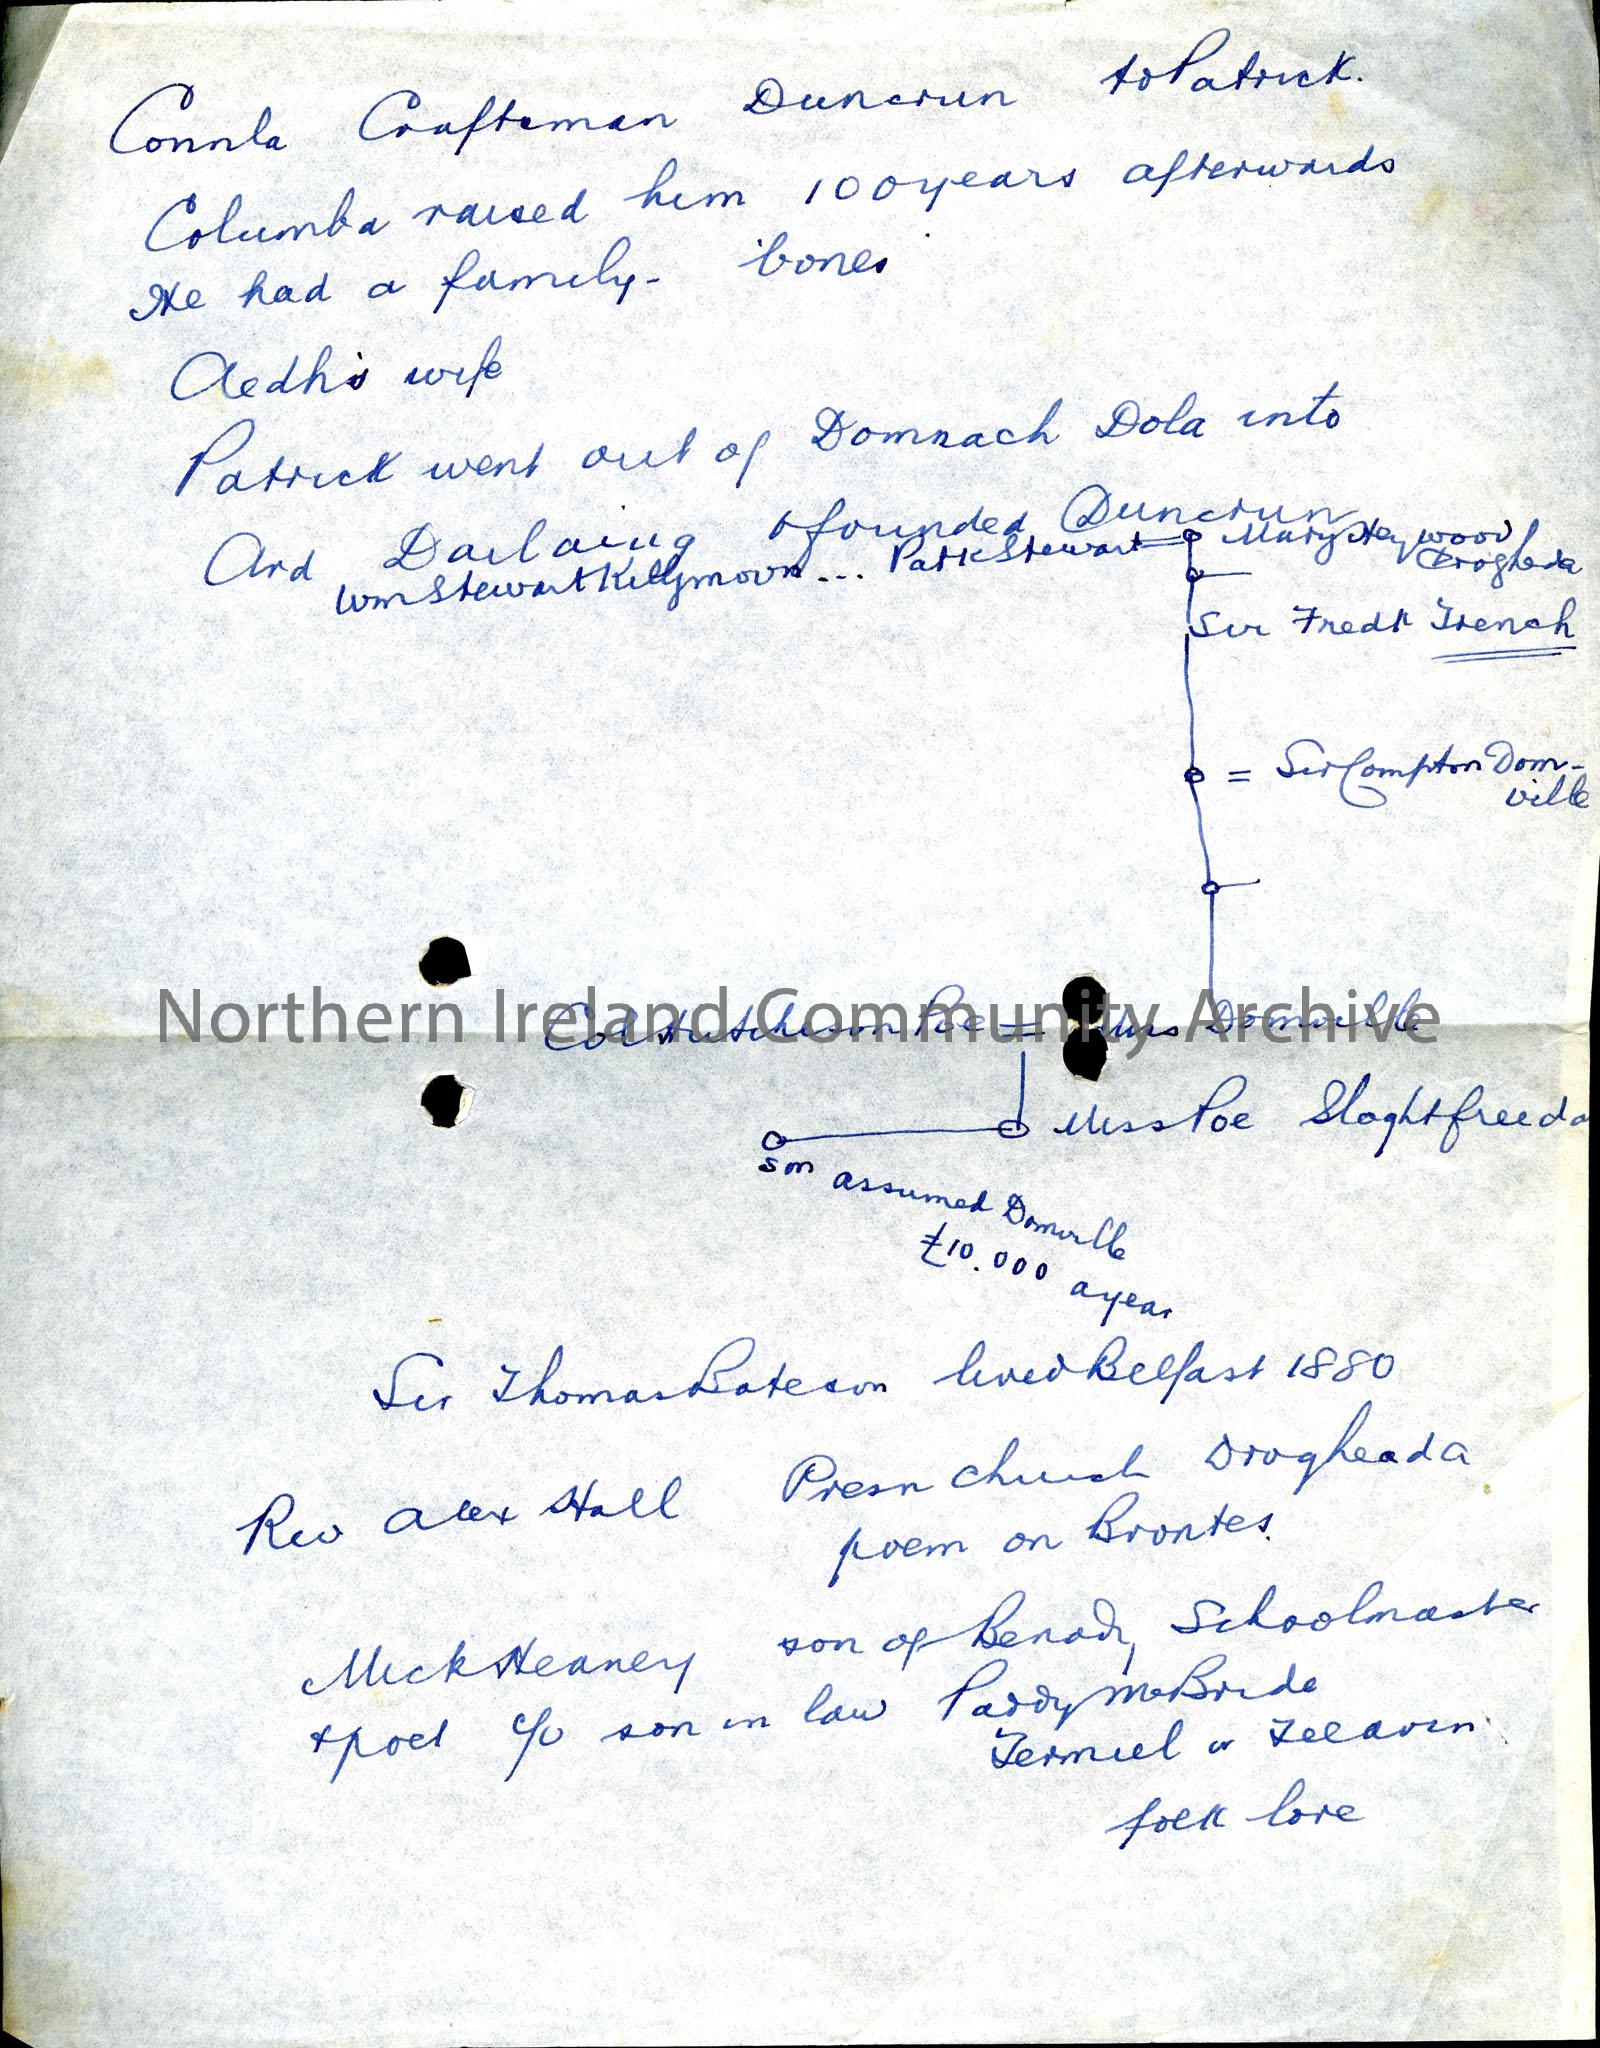 Connla Craftsman Duncrun to Patrick.
Columba raised him 100 years afterwards
He had a family - bones
Aedh's wife
Patrick went out of Domnach Dola into
Ard Dailauig & founded Duncrun
Wm Stewart Killymoon... Patk Stewart = Mary Heywood
Drogheda
Sir Fredk Trench
= Sir Compton Dom-
ville
Northern Ireland Community Archive
Col Hutcheson Poe = Miss Domville
Miss Poe Slaghtfreeda
son assumed Domville
£10.000 a year
Sir Thomas Bateson lived Belfast 1880
Rev Alex Hall Presn Church Drogheada
poem on Brontes.
Mick Heaney son of Benady Schoolmaster
& poet c/o son in law Paddy McBride
Termiel or Teeavin
folk lore